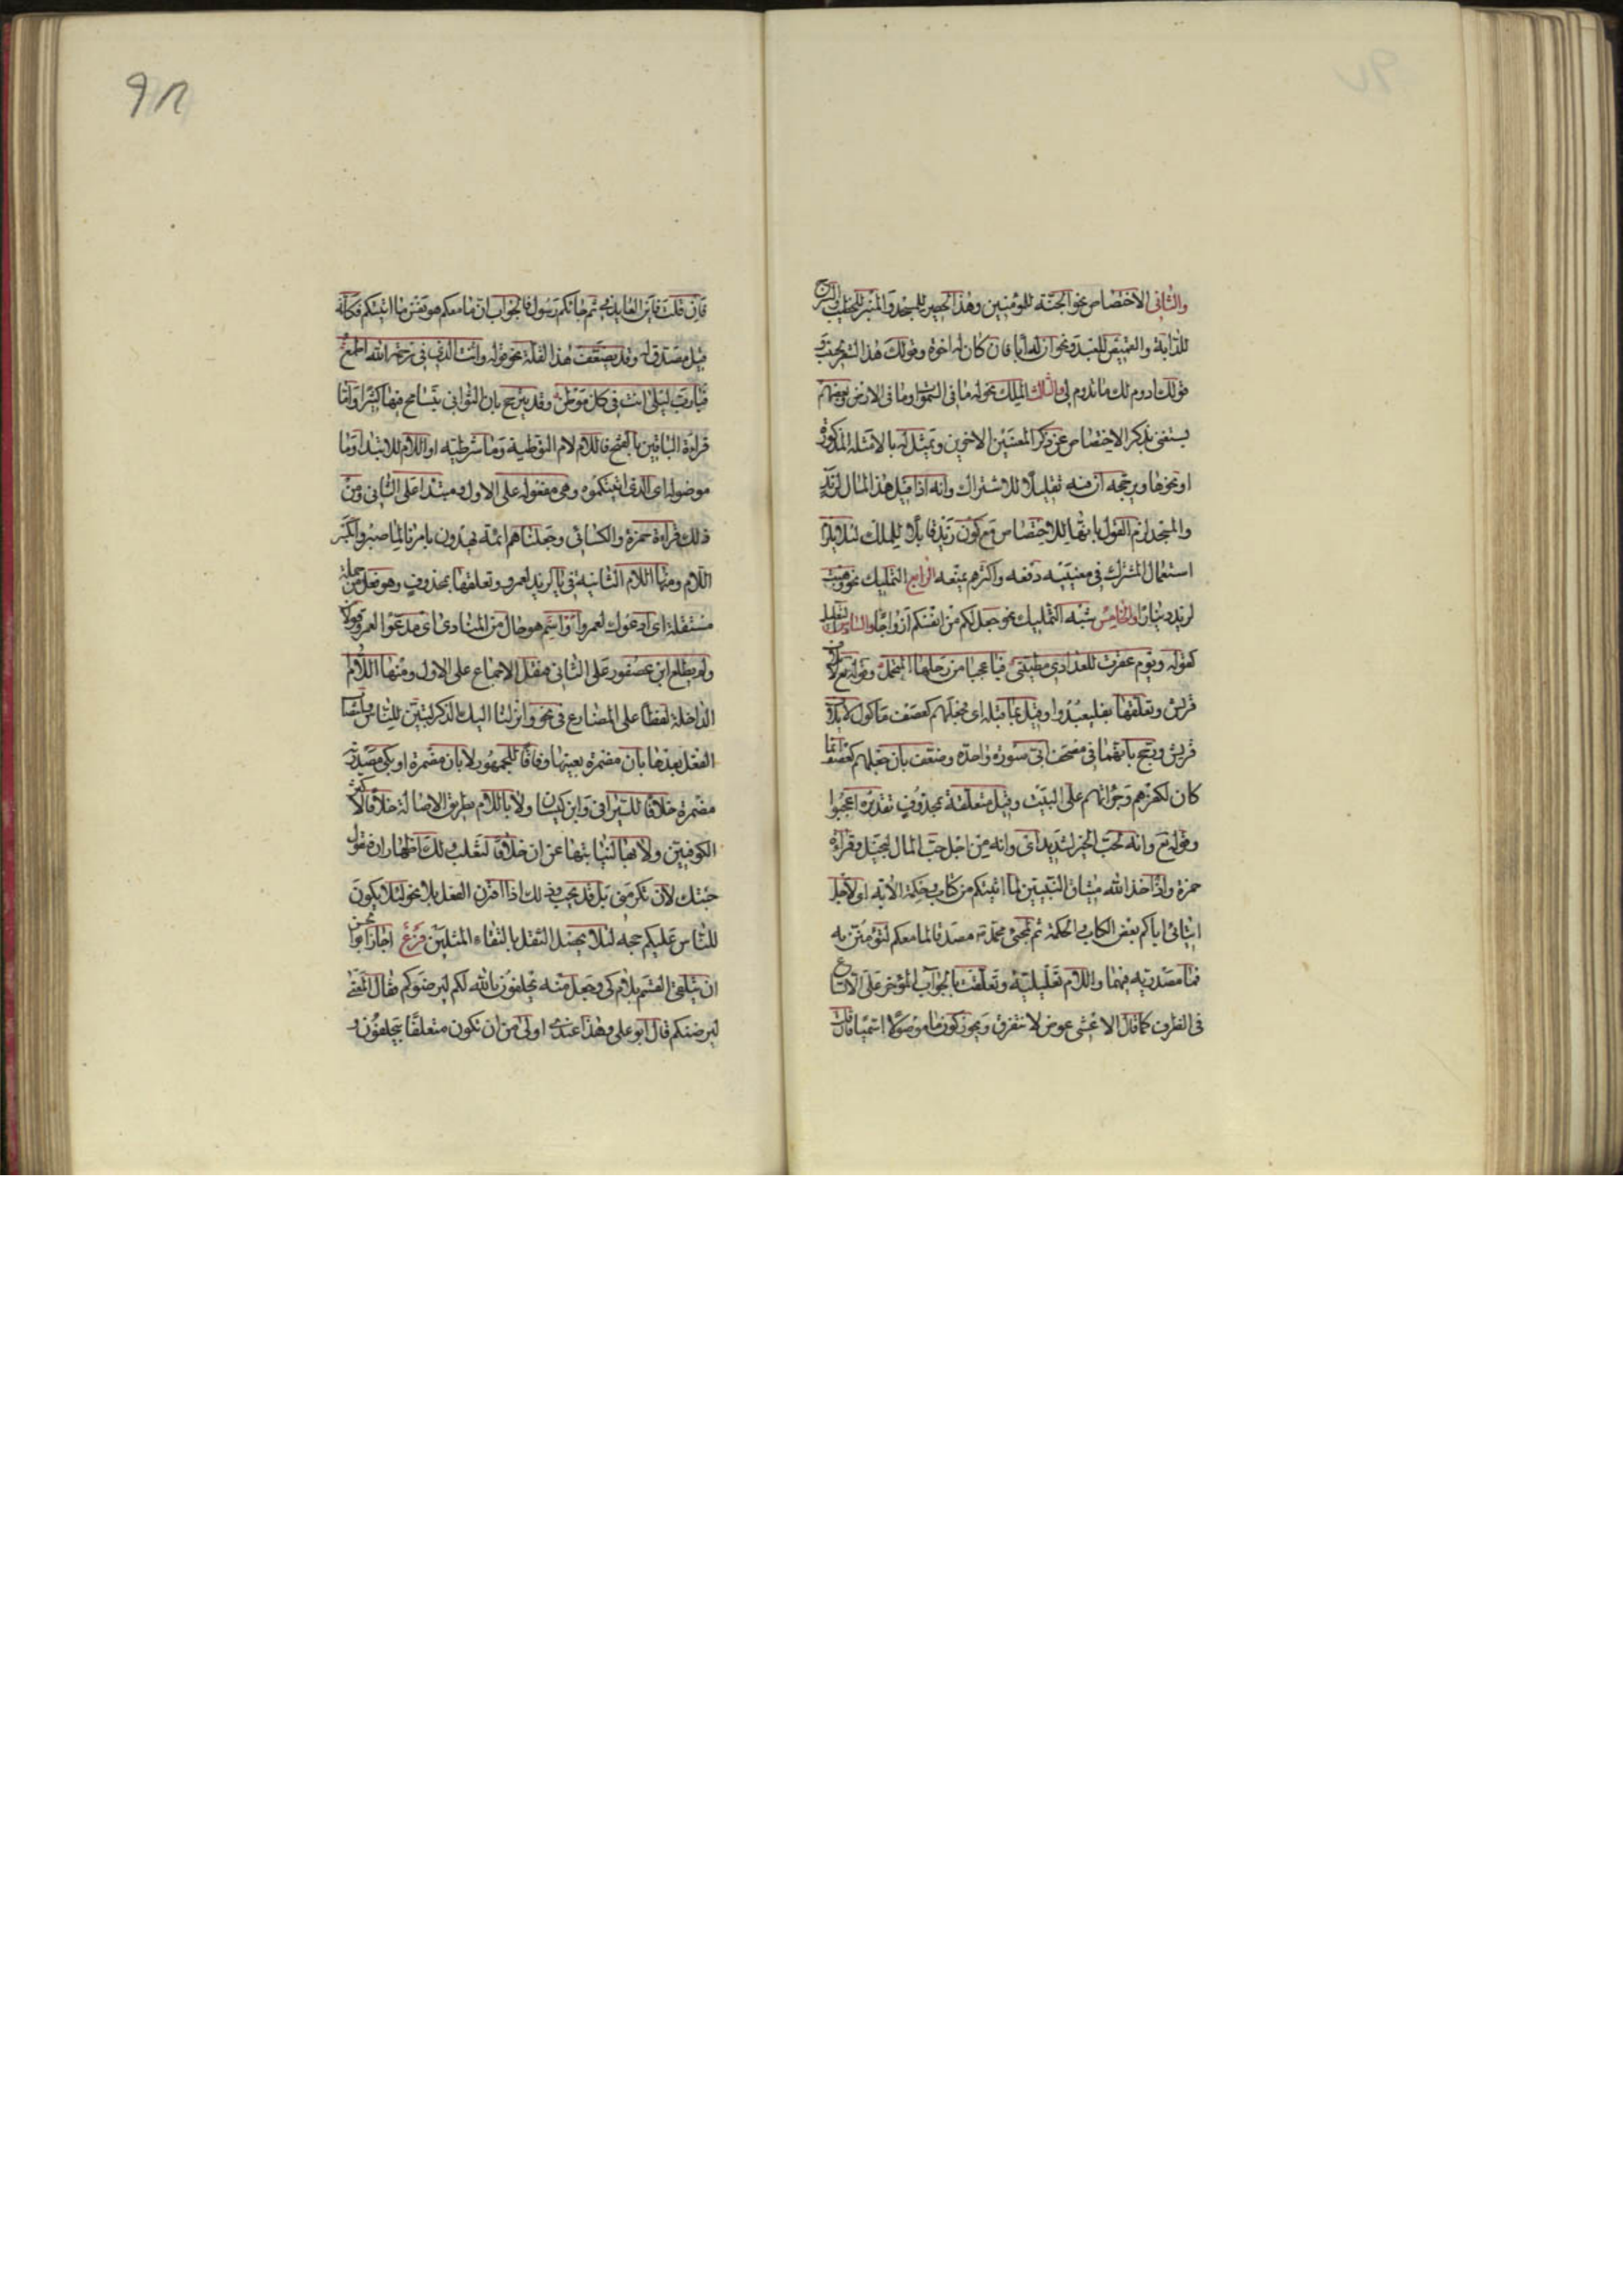 والثانى الاختصاص نحو الجنة للمؤمنين وهذا الحصير للمسجد والمنبر للخطيب والسرج
للدابة والقميص للعبد ونحو ان له ابا فان كان له اخوة وقولك هذا الشعر لحبيب و
قولك ادوم لك ما تدوم لى والثالث الملك نحو له ما فى السموات وما فى الارض وبعضهم
يستغنى بذكر الاختصاص عن ذكر المعنيين الاخرين ويمثل له بالامثلة المذكورة
او نحوها ويرجحه ان فيه تقليلا للاشتراك وانه اذا قيل هذا المال لزيد
والمسجد لزم القول بانها للاختصاص مع كون زيد قابلا للملك لئلا يلزم
استعمال المشترك فى معنييه دفعه واكثرهم يمنعه الرابع التمليك نحو وهبت
لزيد دينارا والخامس شبه التمليك نحو جعل لكم من انفسكم ازواجا والسادس التعليل
كقوله ويوم عقرت للعذارى مطيتى فيا عجبا من رحلها المتحمل وقوله تع لايلاف
قريش وتعلقها بفليعبدوا وقيل بما قبله اى فجعلهم كعصف ماكول لايلاف
قريش ورجح بانهما فى مصحف ابى سورة واحدة وضعف بان جعلهم كعصف انما
كان لكفرهم وجراتهم على البيت وقيل متعلقة بمحذوف تقديره اعجبوا
وقوله تع وانه لحب الخير لشديد اى وانه من اجل حب المال لبخيل وقراءة
حمزة واذ اخذ الله ميثاق النبيين لما اتيتكم من كتاب وحكمة الاية اى لاجل
ايتائى اياكم بعض الكتاب والحكمة ثم لمجئ محمد ص مصدقا لما معكم لتؤمنن به
فما مصدرية فيهما واللام تعليلية وتعلقت بالجواب المؤخر على الاتساع
فى الظرف كما قال الاعشى عوض لا نتفرق ويجوز كون ما موصولا اسميا فان قلت
فان قلت فاين العايد فى ثم جاءكم رسول فالجواب ان ما معكم هو نفس ما اتيتكم فكانه
قيل مصدق له وقد يضعف هذا لقلة نحو قوله وانت الذى فى رحمة الله اطمع
فيا رب ليلى انت فى كل موطن وقد يرجح بان الثوانى يتسامح فيها كثيرا واما
قراءة الباقين بالفتح فاللام لام التوطية وما شرطية او اللام للابتداء وما
موصولة اى الذى اتيتكموه وهى مفعوله على الاول ومبتدا على الثانى ومن
ذلك قراءة حمزة والكسائى وجعلنا هم ائمة يهدون بامرنا لما صبروا بكسر
اللام ومنها اللام الثانية فى يا لزيد لعمرو وتعلقها بمحذوف وهو فعل من جملة
مستقلة اى ادعوك لعمرو او اسم هو حال من المنادى اى مدعوا لعمرو قولان
ولم يطلع ابن عصفور على الثانى فنقل الاجماع على الاول ومنها اللام
الداخلة لفظا على المضارع فى نحو وانزلنا اليك الذكر لتبين للناس وانتصاب
الفعل بعدها بان مضمرة بعينها وفاقا للجمهور لا بان مضمرة او بكى مصدرية
مضمرة خلافا للسيرافى وابن كيسان ولا باللام بطريق الاصالة خلافا لاكثر
الكوفيين ولا بها لنيابتها عن ان خلافا لثعلب ولك اظهار ان فتقول
جئتك لان تكرمنى بل قد يجب وذلك اذا اقترن الفعل بلا نحو لئلا يكون
للناس عليكم حجة لئلا يحصل الثقل بالتقاء المثلين فرع اجاز ابو الحسن
ان يتلقى القسم بلام كى وجعل منه يحلفون بالله لكم ليرضوكم فقال المعنى
ليرضنكم قال ابو على وهذا عندى اولى من ان تكون متعلقا بيحلفون و